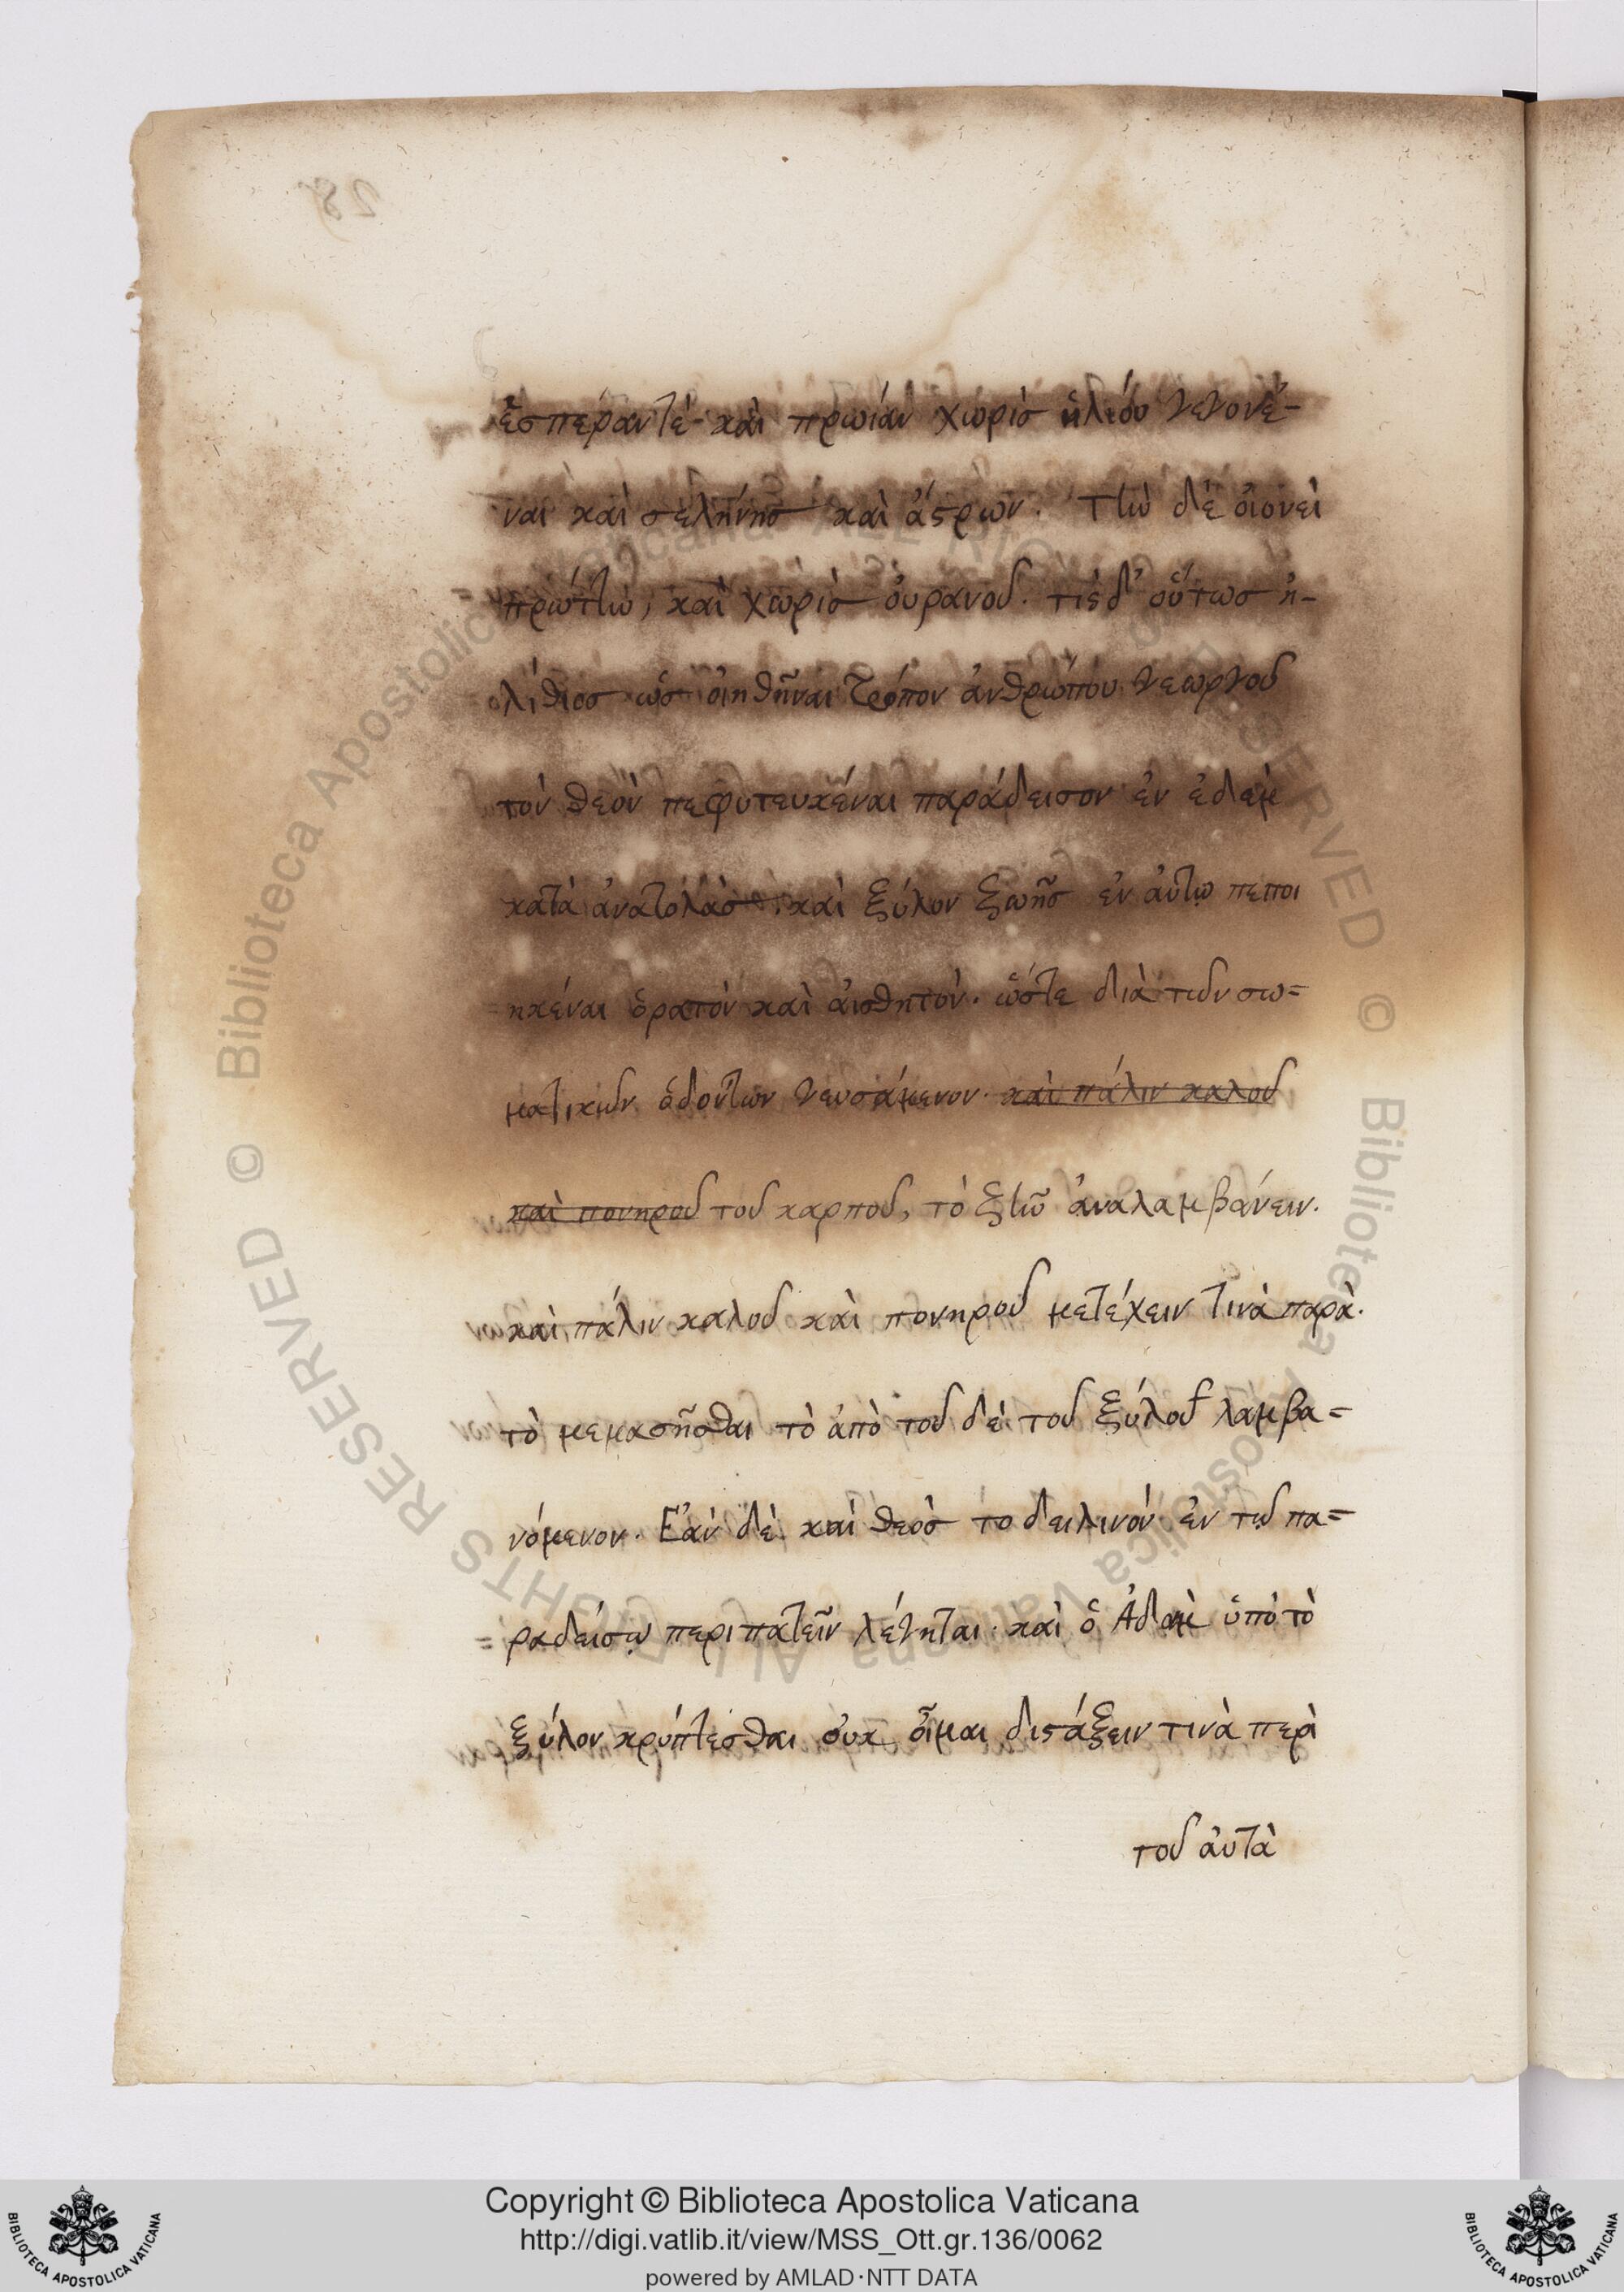 ἑσπέραν τὲ καὶ πρωίαν χωρὶσ ἡλιόυ γεγονέ-
ναι καὶ σελήνησ καὶ ἀςρων. Τὴν δὲ ὁιονεὶ
πρώτην, καὶ χωρὶσ ὀυρανοῦ. τίς δ' ὁύτωσ ἠ-
λίθιοσ ὡσ ὀιηθῆναι τρόπον ἀνθρώπου γεωργοῦ
τὸν θεὸν πεφυτευκέναι παράδεισον ἐν ἐδεμ
κατὰ ἀνατολὰσ. καὶ ξύλον ζωῆσ ἐν ἀυτῳ πεποι
ηκέναι ὁρατὸν καὶ ἀισθητὸν. ὥστε διὰ τῶν σω=
ματικῶν ὀδοντων γευσάμενον. καὶ πάλιν καλοῦ
καὶ πονηροῦ τοῦ καρποῦ, τὸ ζῆν ἀναλαμβάνειν.
καὶ πάλιν καλοῦ καὶ πονηροῦ μετέχειν τινὰ παρὰ.
τὸ μεμασῆσθαι τὸ ἀπὸ τοῦ δὲ τοῦ ξύλου λαμβα=
νόμενον. Εὰν δὲ καὶ θεὸσ το δειλινὸν ἐν τῷ πα=
= ραδείσῳ περιπατεῖν λέγηται. καὶ ὁ Ἀδαμ ὑπὸ τὸ
ξύλον κρύπτεσθαι ὀυκ ὀῖμαι διςάξειν τινὰ περὶ
τοῦ ἀυτὰ
Copyright © Biblioteca Apostolica Vaticana
http://digi.vatlib.it/view/MSS_Ott.gr.136/0062
powered by AMLAD·NTT DATA
BIBLIOTECA APOSTOLICA VATICANA
BIBLIOTECA APOSTOLICA VATICANA